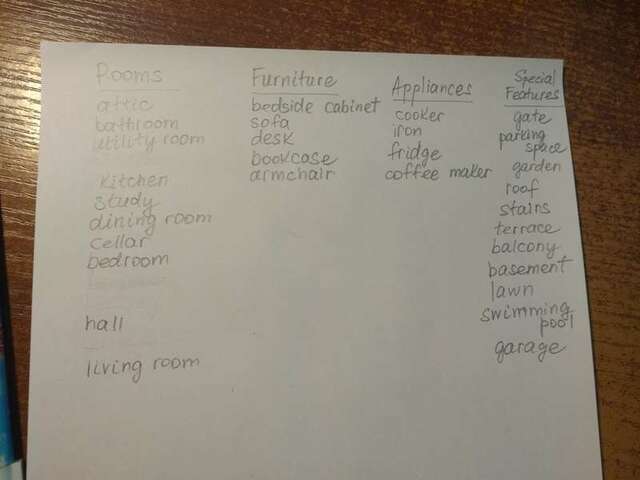 Rooms
attic
bathroom
utility room
kitchen
study
dining room
cellar
bedroom
hall
living room
Furniture
bedside cabinet
sofa
desk
bookcase
armchair
Appliances
cooker
iron
fridge
coffee maker
Special
Features
gate
parking
space
garden
roof
stairs
terrace
balcony
basement
lawn
swimming
pool
garage